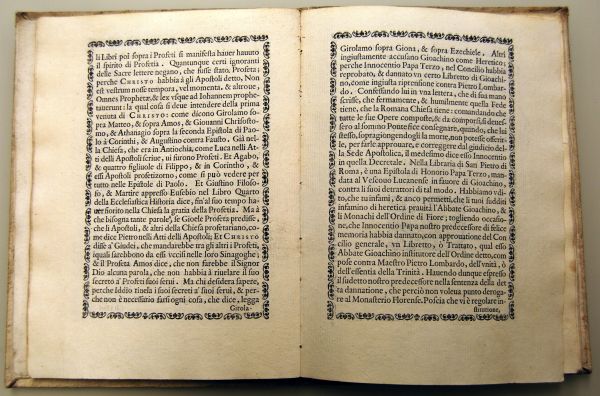 li Libri poi sopra i Profeti si manifesta hauer hauuto
il spirito di Profetia. Quantunque certi ignoranti
delle Sacre lettere negano, che fusse stato, Profeta;
perche CHRISTO habbia à gli Apostoli detto, Non
est vestrum nosse tempora, vel momenta. & altroue,
Omnes Prophetæ, & lex vsque ad Iohannem prophe-
tauerunt: la qual cosa si deue intendere della prima
venuta di CHRISTO: come dicono Girolamo so-
pra Matteo, & sopra Amos, & Giouanni Chrisosto-
mo, & Athanagio sopra la seconda Epistola di Pao-
lo à Corinthi, & Augustino contra Fausto. Già nel-
la Chiesa, che era in Antiochia, come Luca nelli At-
ti delli Apostoli scriue, vi furono Profeti. Et Agabo,
& quattro figliuole di Filippo, & in Corintho, &
essi Apostoli profetizorno, come si può vedere per
tutto nelle Epistole di Paolo. Et Giustino Filoso-
fo, & Martire appresso Eusebio nel Libro Quarto
della Ecclesiastica Historia dice, fin'al suo tempo ha-
uer fiorito nella Chiesa la gratia della Profetia. Ma à
che bisogna tante parole, se Gioele Profeta predisse,
che li Apostoli, & altri della Chiesa profetariano, co-
me dice Pietro nelli Atti delli Apostoli; Et CHRISTO
disse a' Giudei, che mandarebbe trà gli altri i Profeti,
quali sarebbono da essi vccisi nelle loro Sinagoghe;
& il Profeta Amos dice, che non farebbe il Signor
Dio alcuna parola, che non habbia à riuelare il suo
secreto a' Profeti suoi serui. Ma chi desidera sapere,
perche Iddio riuela i suoi secreti a' suoi serui, & per-
che non è necessario farsi ogni cosa, che dice, legga
Girola-
Girolamo sopra Giona, & sopra Ezechiele. Altri
ingiustamente accusano Gioachino come Heretico;
perche Innocentio Papa Terzo, nel Concilio habbia
reprobato, & dannato vn certo Libretto di Gioachi-
no, come ingiusta riprensione contra Pietro Lombar-
do. Confessando lui in vna lettera, che di sua mano
scrisse, che fermamente, & humilmente quella Fede
tiene, che la Romana Chiesa tiene: comandando che
tutte le sue Opere composte, & da comporsi, si desse-
sero al sommo Pontefice consegnare, quando, che lui
stesso, sopragiongendogli la morte, non potesse offerir-
le, per farle approuare, e correggere dal giudicio del-
la Sede Apostolica, il medesimo dice esso Innocentio
in quella Decretale. Nella Libraria di San Pietro di
Roma, è vna Epistola di Honorio Papa Terzo, man-
data al Vescouo Lucanense in fauore di Gioachino,
contra li suoi detrattori di tal modo. Habbiamo vdi-
to, che tu infami, & anco permetti, che li tuoi sudditi
infamino di heretica prauità l'Abbate Gioachino, &
li Monachi dell'Ordine di Fiore; togliendo occasio-
ne, che Innocentio Papa nostro predecessore di felice
memoria habbia dannato, con approuatione del Con-
cilio generale, vn Libretto, ò Trattato, qual esso
Abbate Gioachino institutore dell'Ordine detto, com-
pose contra Maestro Pietro Lombardo, dell'vnità, ò
dell'essentia della Trinità. Hauendo dunque espresso
il sudetto nostro predecessore nella sentenza della det-
ta dannatione, che perciò non voleua punto deroga-
re al Monasterio Florense. Poscia che vi è regolare in-
stitutione,